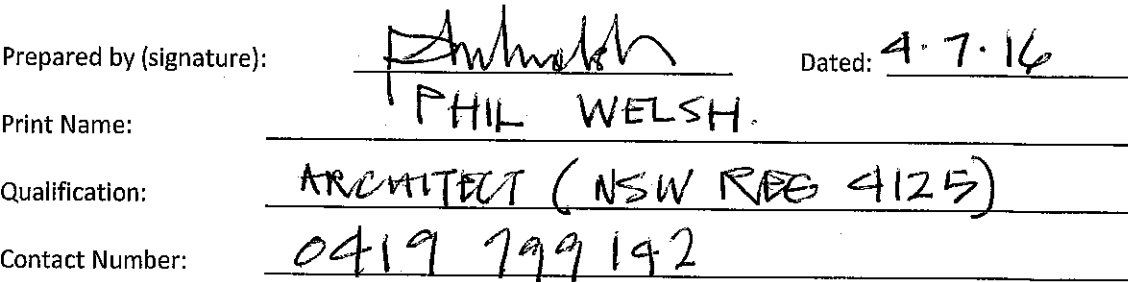 Prepared by (signature): Dated: 4.7.16
Print Name: PHIL WELSH.
Qualification: ARCHITECT (NSW REG 4125)
Contact Number: 0419 799 142